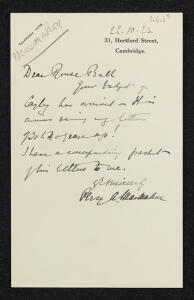 MacMahon
TELEPHONE
22.10.23
31, Hertford Street,
Cambridge.
Dear Rouse Ball
Your budget of
Cayley has arrived
my letters
years ago!
I have a corresponding packet
of his letters to me.
Yrs sincerely
Percy A. MacMahon